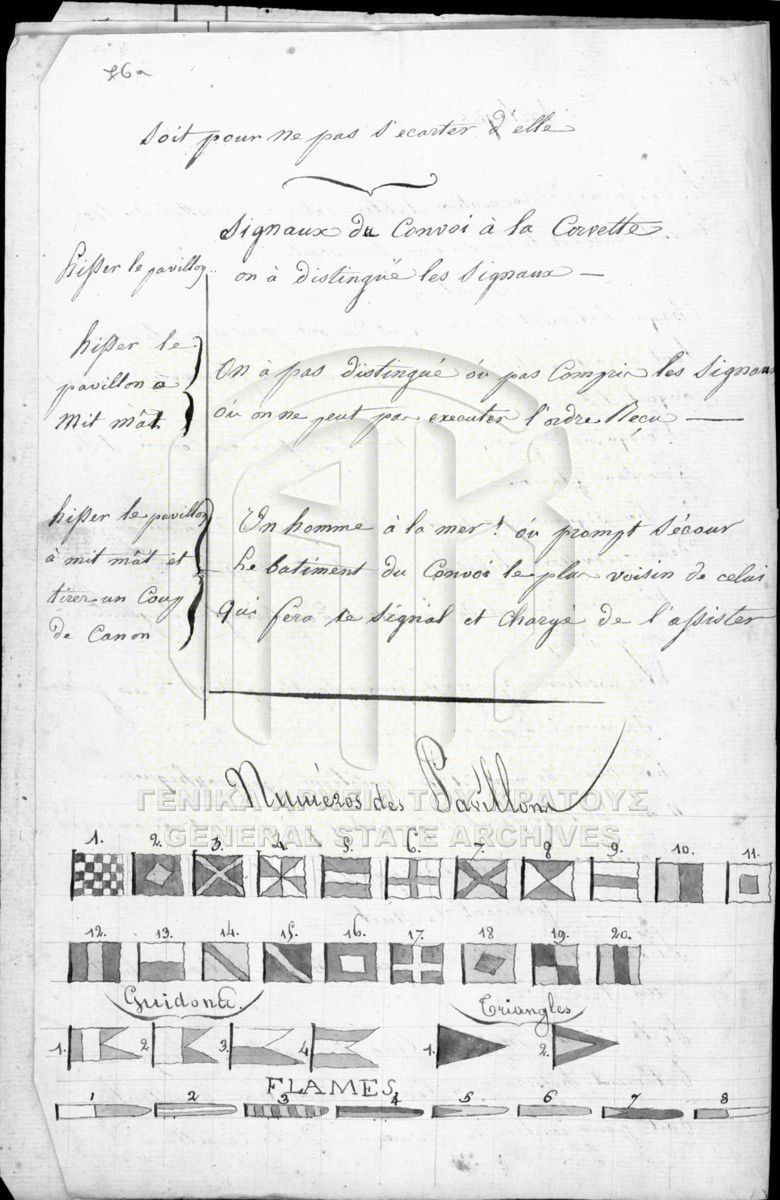 soit pour ne pas s'ecarter d'elle
Signaux du Convoi à la Corvette.
hisser le pavillon
on à distingué les signaux —
hisser le
pavillon a
Mit mât
On à pas distingué óu pas Compris les signaux
óu on ne peut pas executer l'ordre Reçu —
hisser le pavillon
à mit mât et
tirer un Coup
de Canon
Un homme à la mer! óu prompt sécour
Le batiment du Convoi le plus voisin de celui
qui fera le signal et chargé de l'assister
Numéros des Pavillons
ΓΕΝΙΚΑ ΑΡΧΕΙΑ ΤΟΥ ΚΡΑΤΟΥΣ
GENERAL STATE ARCHIVES
1. 2. 3. 4. 5. 6. 7. 8 9. 10. 11.
12. 13. 14. 15. 16. 17. 18 19. 20.
Guidons. Triangles
1. 2 3. 4 1. 2.
FLAMES
1 2 3 4 5 6 7 8